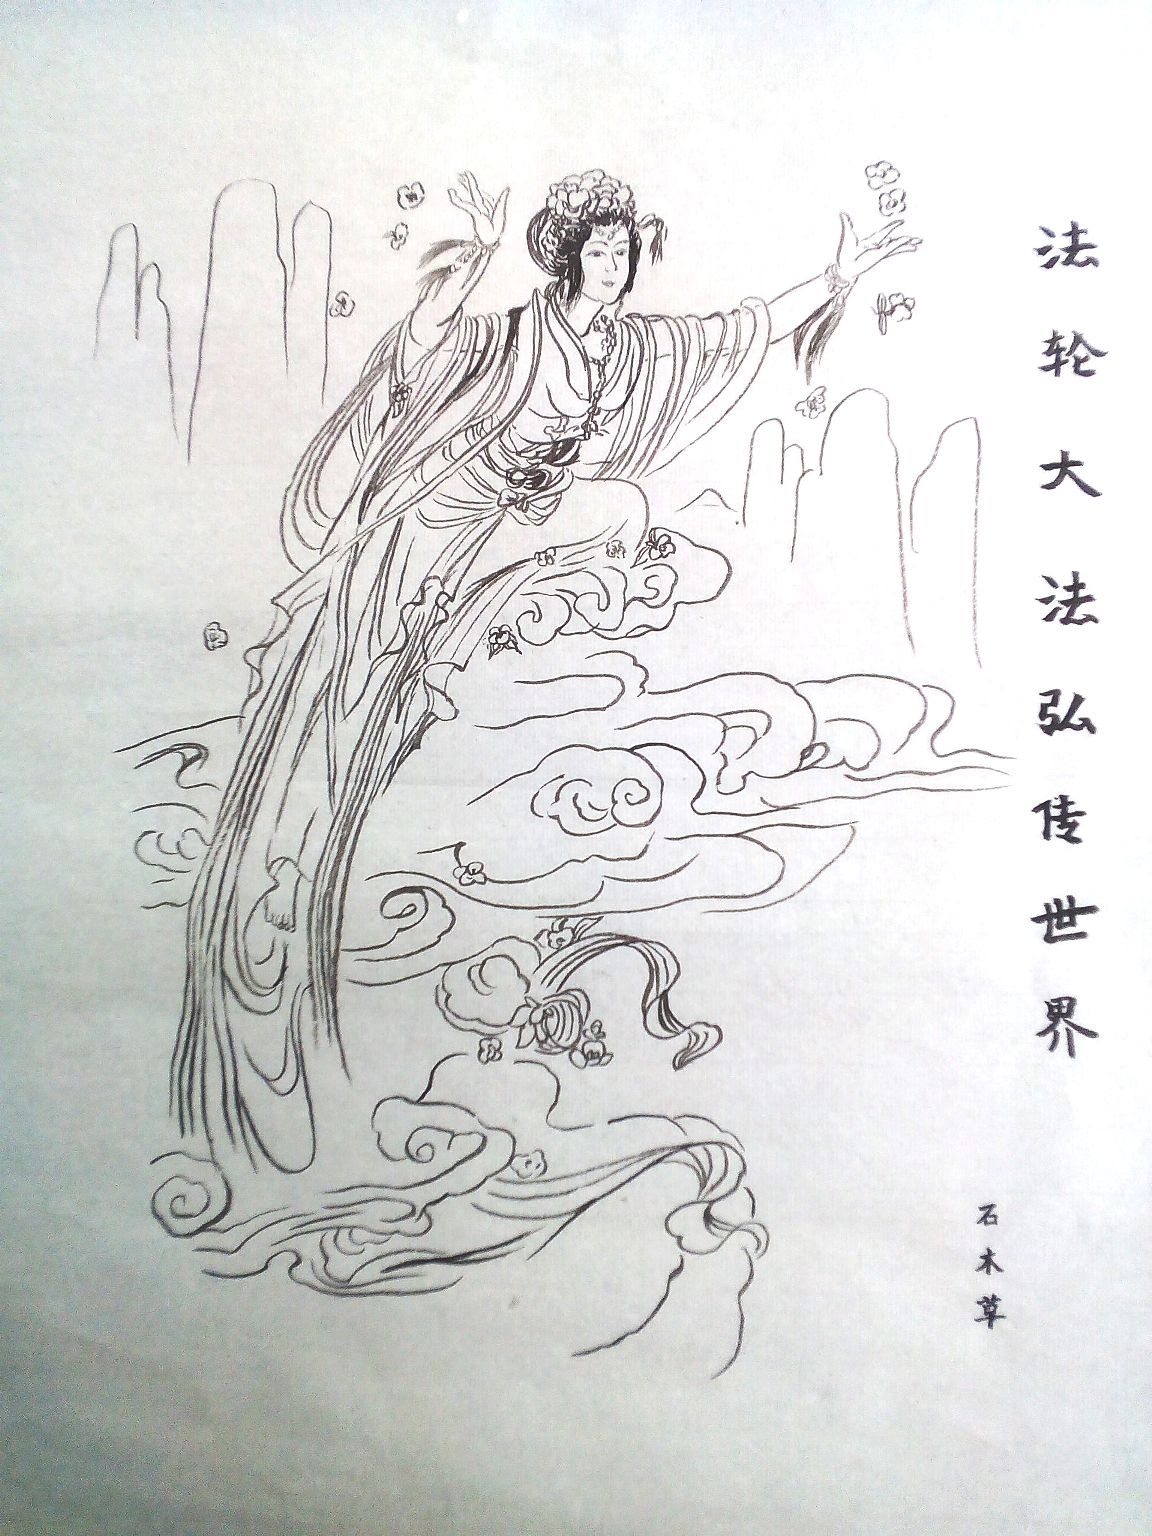 法轮大法弘传世界
石木草